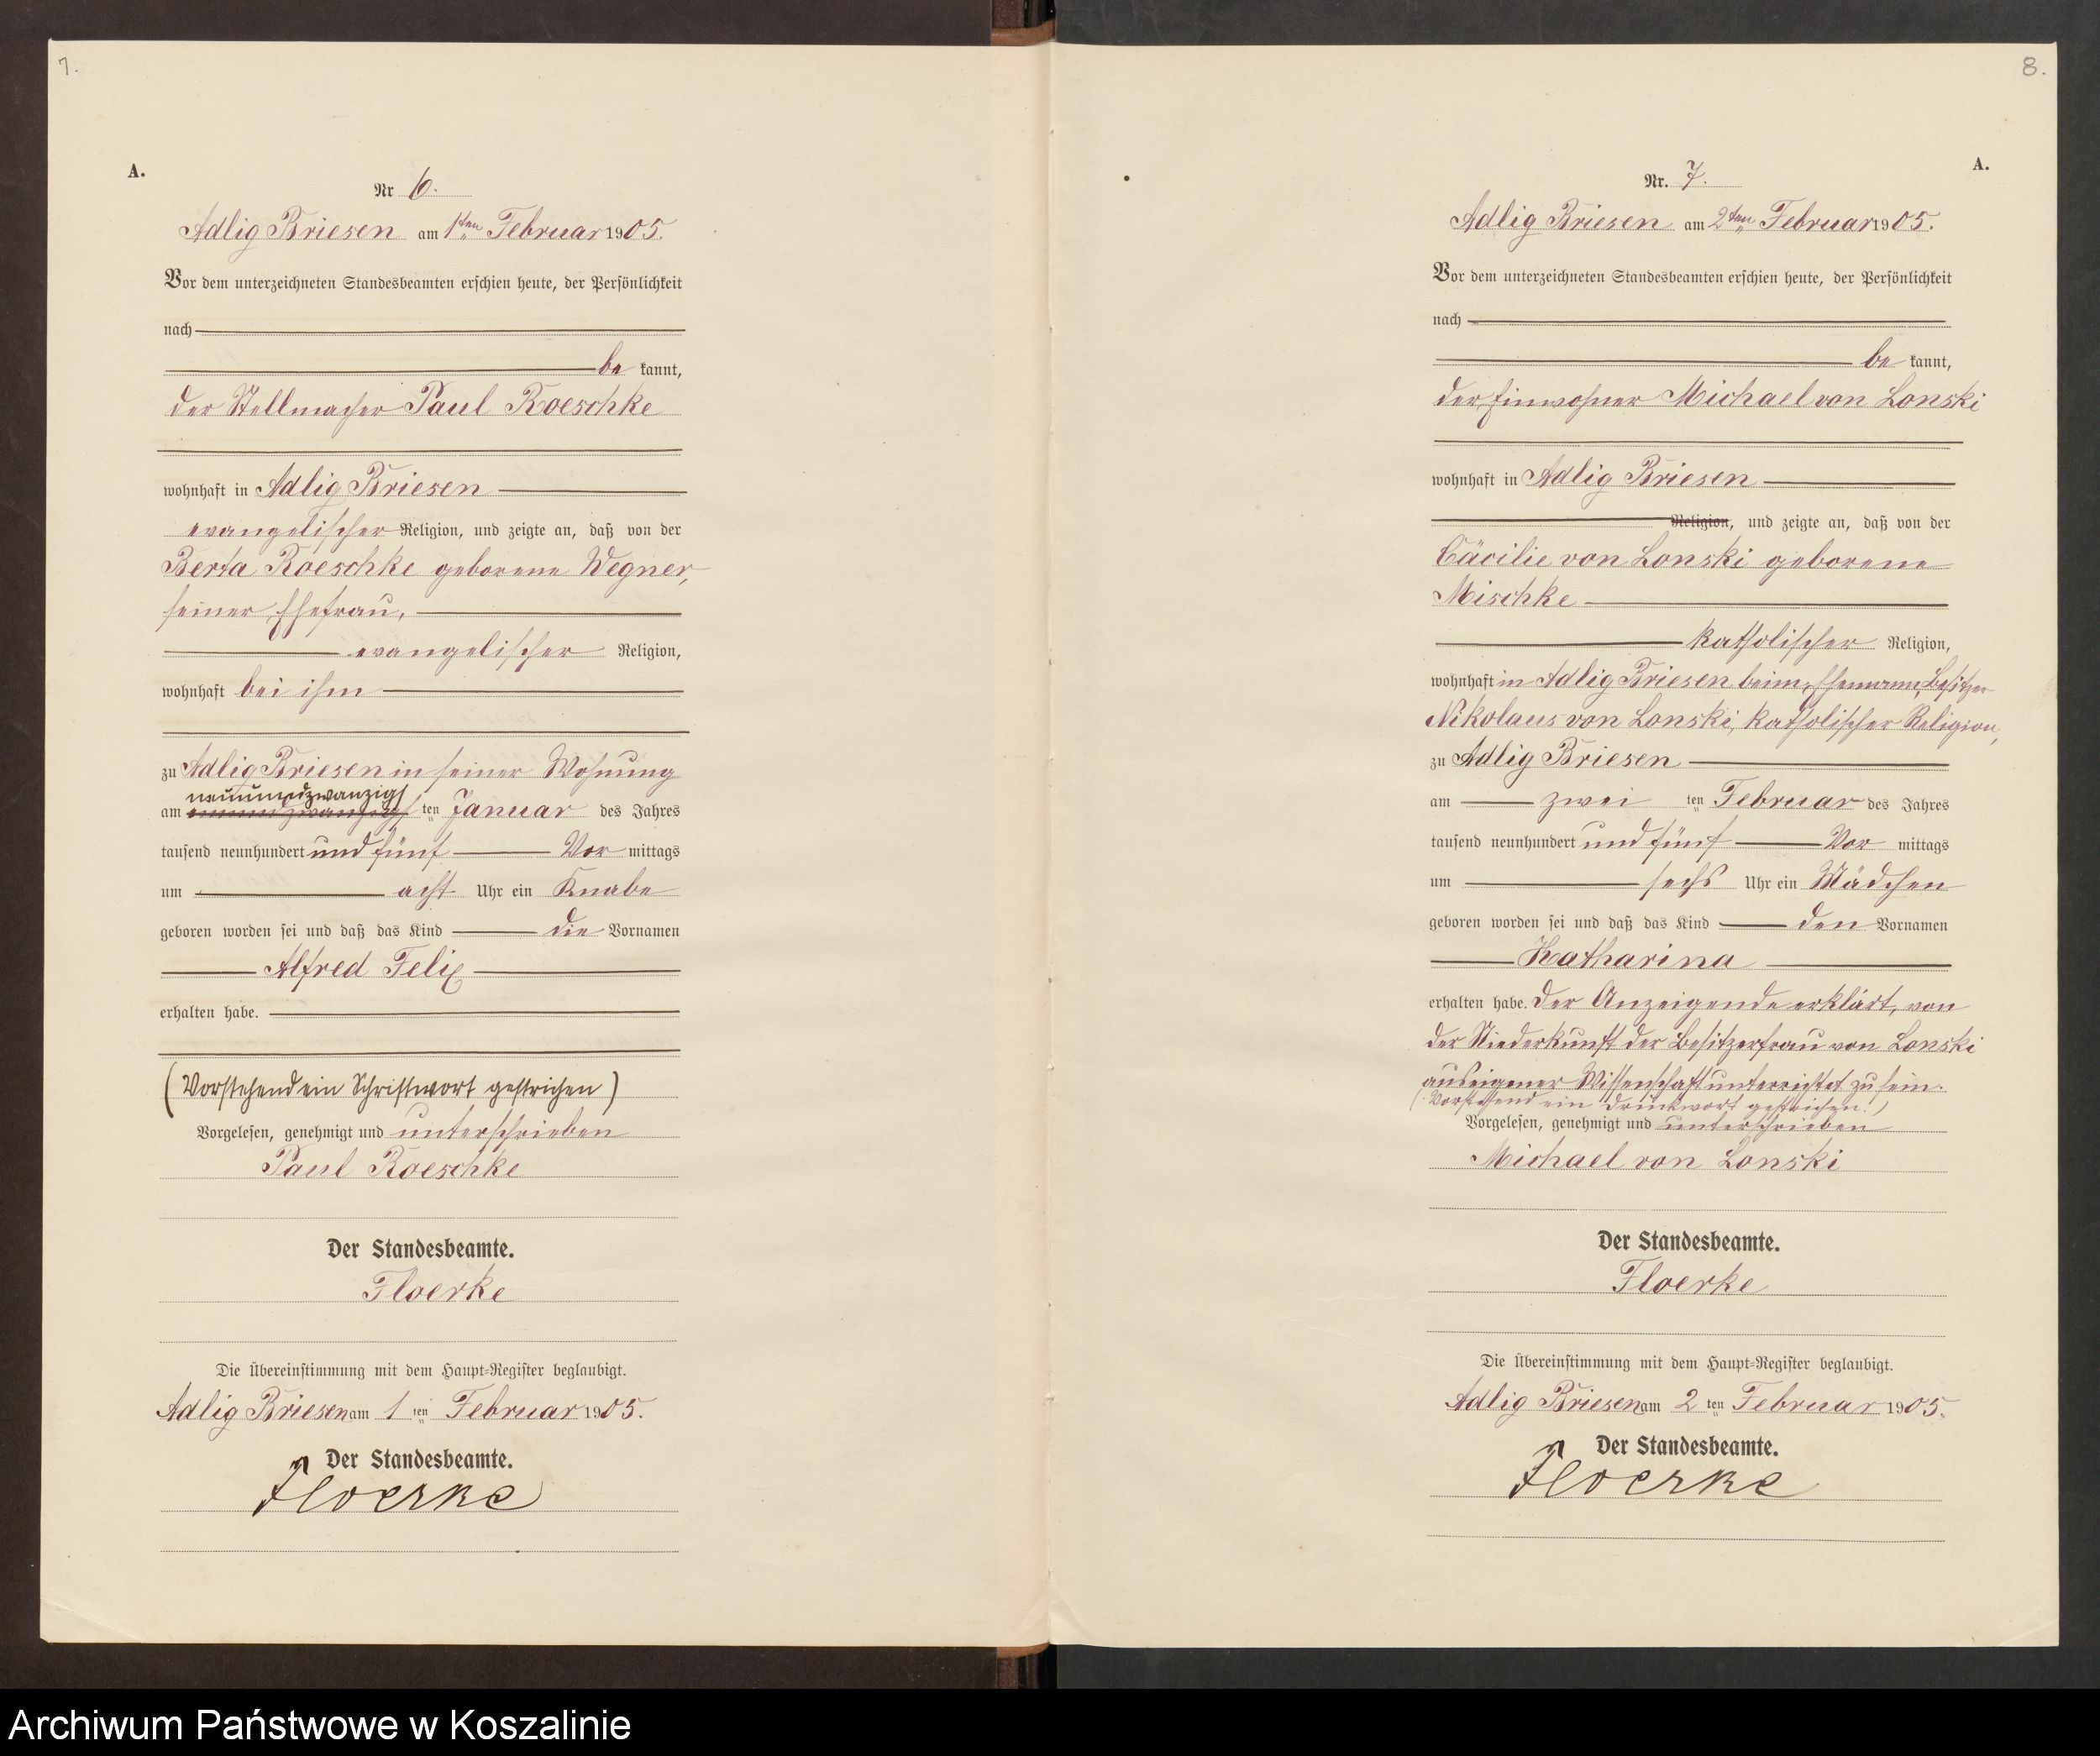 7.
A.
Nr 6.
Adlig Briesen am 1ten Februar 1905.
Vor dem unterzeichneten Standesbeamten erschien heute, der Persönlichkeit
nach
be kannt,
der Stellmacher Paul Roeschke
wohnhaft in Adlig Briesen
evangelischer Religion, und zeigte an, daß von der
Berta Roeschke geborene Wegner,
seiner Ehefrau,
evangelischer Religion,
wohnhaft bei ihm
zu Adlig Briesen in seiner Wohnung
neunundzwanzigs
am ten Januar des Jahres
tausend neunhundert und fünf Vor mittags
um acht Uhr ein Knabe
geboren worden sei und daß das Kind die Vornamen
Alfred Felix
erhalten habe.
(Vorstehend ein Schriftwort gestrichen)
Vorgelesen, genehmigt und unterschrieben
Paul Roeschke
Der Standesbeamte.
Floerke
Die Übereinstimmung mit dem Haupt-Register beglaubigt.
Adlig Briesen am 1 ten Februar 1905.
Der Standesbeamte.
Floerke
8.
A.
Nr. 7.
Adlig Briesen am 2ten Februar 1905.
Vor dem unterzeichneten Standesbeamten erschien heute, der Persönlichkeit
nach
be kannt,
der Einwohner Michael von Lonski
wohnhaft in Adlig Briesen
Religion, und zeigte an, daß von der
Cäcilie von Lonski geborene
Mischke
katholischer Religion,
wohnhaft in Adlig Briesen beim Ehemanne, Besitzer
Nikolaus von Lonski, katholischer Religion,
zu Adlig Briesen
am zwei ten Februar des Jahres
tausend neunhundert und fünf Vor mittags
um sechs Uhr ein Mädchen
geboren worden sei und daß das Kind den Vornamen
Katharina
erhalten habe. Der Anzeigende erklärt, von
der Niederkunft der Besitzerfrau von Lonski
aus eigener Wissenschaft unterrichtet zu sein.
(Vorstehend ein Druckwort gestrichen.)
Vorgelesen, genehmigt und unterschrieben
Michael von Lonski
Der Standesbeamte.
Floerke
Die Übereinstimmung mit dem Haupt-Register beglaubigt.
Adlig Briesen am 2 ten Februar 1905.
Der Standesbeamte.
Floerke
Archiwum Państwowe w Koszalinie